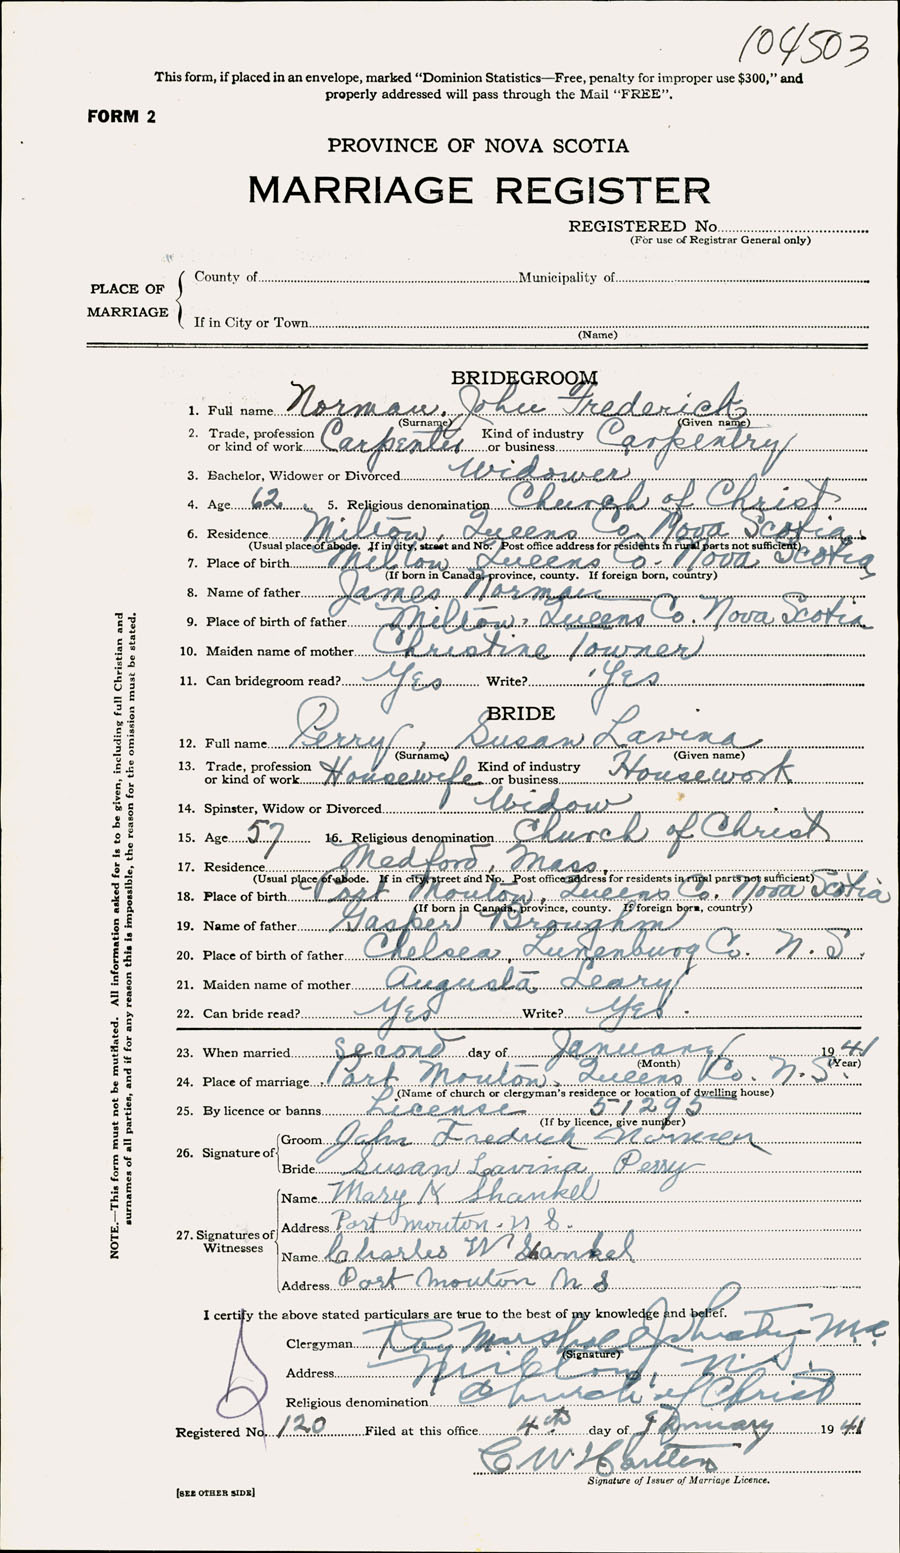 104503
This form, if placed in an envelope, marked "Dominion Statistics—Free, penalty for improper use $300," and
properly addressed will pass through the Mail "FREE".
FORM 2
PROVINCE OF NOVA SCOTIA
MARRIAGE REGISTER
REGISTERED No.
(For use of Registrar General only)
PLACE OF MARRIAGE
County of Municipality of
If in City or Town
(Name)
BRIDEGROOM
1. Full name Norman, John Frederick
(Surname) (Given name)
2. Trade, profession or kind of work Carpenter Kind of industry or business Carpentry
3. Bachelor, Widower or Divorced Widower
4. Age 62 5. Religious denomination Church of Christ
6. Residence Milton, Queens Co. Nova Scotia
(Usual place of abode. If in city, street and No. Post office address for residents in rural parts not sufficient)
7. Place of birth Milton Queens Co. Nova Scotia
(If born in Canada, province, county. If foreign born, country)
8. Name of father James Norman
9. Place of birth of father Milton, Queens Co. Nova Scotia
10. Maiden name of mother Christine Towner
11. Can bridegroom read? Yes Write? Yes
BRIDE
12. Full name Perry, Susan Lavina
(Surname) (Given name)
13. Trade, profession or kind of work Housewife Kind of industry or business Housework
14. Spinster, Widow or Divorced Widow
15. Age 57 16. Religious denomination Church of Christ
17. Residence Medford, Mass.
(Usual place of abode. If in city, street and No. Post office address for residents in rural parts not sufficient)
18. Place of birth Port Mouton, Queens Co. Nova Scotia
(If born in Canada, province, county. If foreign born, country)
19. Name of father Gasper Broughm
20. Place of birth of father Chelsea, Lunenburg Co. N. S.
21. Maiden name of mother Augusta Leary
22. Can bride read? Yes Write? Yes.
23. When married Second day of January 1941
(Month) (Year)
24. Place of marriage Port Mouton, Queens Co. N. S.
(Name of church or clergyman's residence or location of dwelling house)
25. By licence or banns License 51295
(If by licence, give number)
26. Signature of
Groom John Fredrick Norman
Bride Susan Lavina Perry
27. Signatures of Witnesses
Name Mary K Shankel
Address Port Mouton. N S.
Name Charles W Shankel
Address Port Mouton N S
I certify the above stated particulars are true to the best of my knowledge and belief.
Clergyman Marshall
(Signature)
Address Milton, N.S.
Religious denomination Church of Christ
Registered No. 120 Filed at this office 4th day of January 1941
C W
Signature of Issuer of Marriage Licence.
[SEE OTHER SIDE]
NOTE.—This form must not be mutilated. All information asked for is to be given, including full Christian and
surnames of all parties, and if for any reason this is impossible, the reason for the omission must be stated.